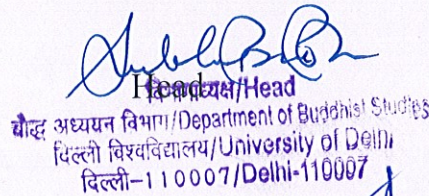 Head
विभागाध्यक्ष/Head
बौद्ध अध्ययन विभाग/Department of Buddhist Studies
दिल्ली विश्वविद्यालय/University of Delhi
दिल्ली-110007/Delhi-110007